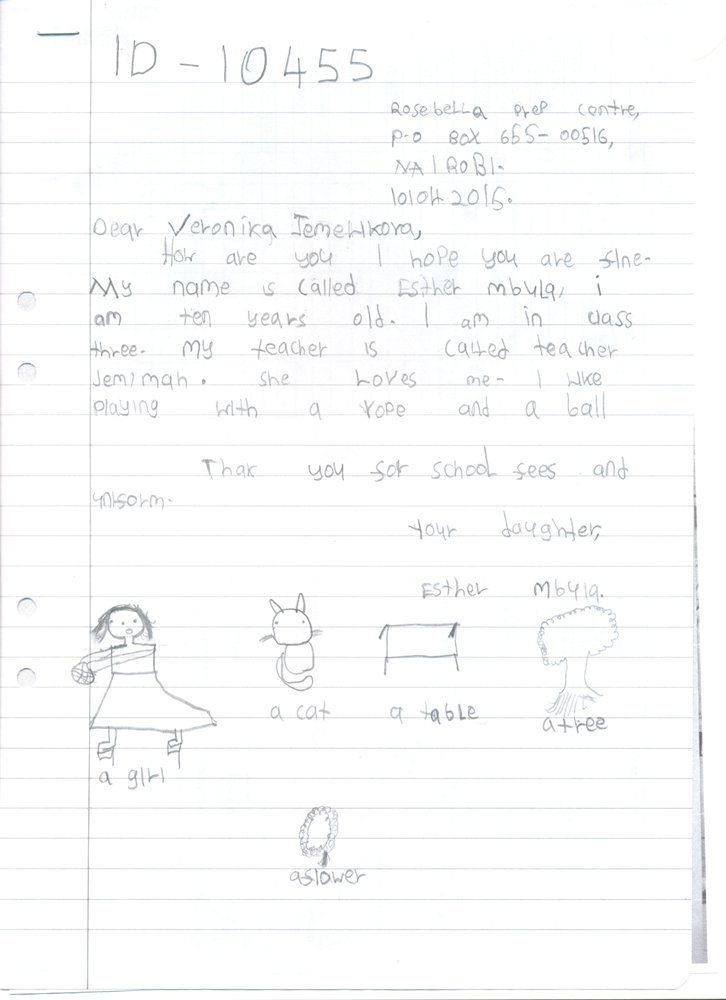 ID - 10455
Rosebella prep centre,
P-O BOX 655-00516,
NAIROBI.
10/04 2015.
Dear Veronika Jemelikova,
How are you I hope you are fine.
My name is called Esther mbula, i
am ten years old. I am in class
three. My teacher is called teacher
Jemimah. she Loves me- I like
playing with a rope and a ball
Thak you for school fees and
uniform.
Your daughter,
Esther Mbula.
a cat
a table
a tree
a girl
a flower